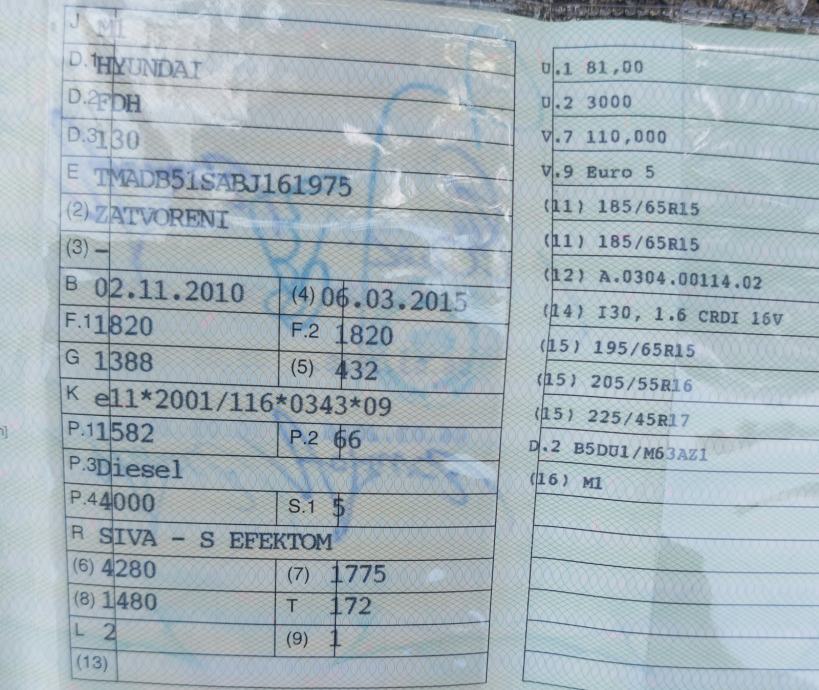 J M1
D.1 HYUNDAI
D.2 FDH
D.3 130
E TMADB51SABJ161975
(2) ZATVORENI
(3) –
B 02.11.2010 (4) 06.03.2015
F.1 1820 F.2 1820
G 1388 (5) 432
K e11*2001/116*0343*09
P.1 1582 P.2 66
P.3 Diesel
P.4 4000 S.1 5
R SIVA - S EFEKTOM
(6) 4280 (7) 1775
(8) 1480 T 172
L 2 (9) 1
(13)
U.1 81,00
U.2 3000
V.7 110,000
V.9 Euro 5
(11) 185/65R15
(11) 185/65R15
(12) A.0304.00114.02
(14) I30, 1.6 CRDI 16V
(15) 195/65R15
(15) 205/55R16
(15) 225/45R17
D.2 B5DU1/M63AZ1
(16) M1